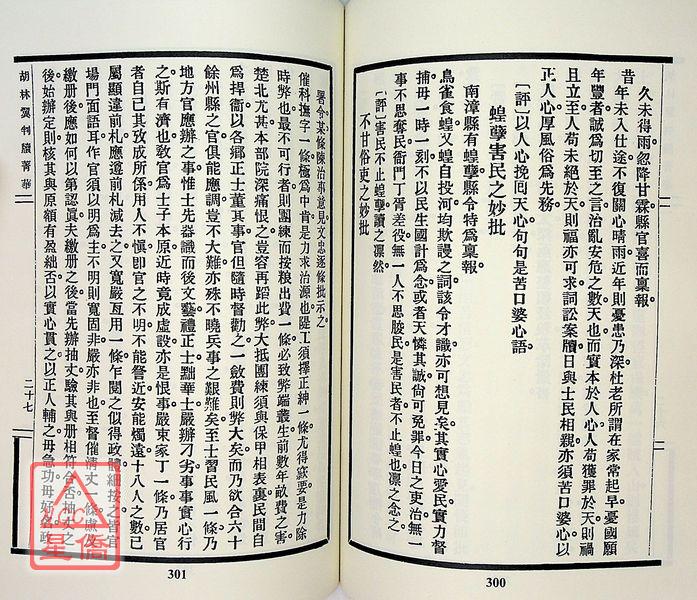 久未得雨。忽降甘霖縣官喜而稟報
昔年未入仕途不復關心晴雨近年則憂患乃深杜老所謂在家常起早憂國願
年豐者誠爲切至之言治亂安危之數天也而實本於人心人苟獲罪於天則禍
且立至人苟未絕於天則福亦可求詞訟案牘日與士民相親亦須苦口婆心以
正人心厚風俗爲先務
〔評〕以人心挽囘天心句句是苦口婆心語
蝗孽害民之妙批
南漳縣有蝗孽縣令特爲稟報
鳥雀食蝗又蝗自投河均欺謾之詞該令才識亦可想見矣其實心愛民實力督
捕毋一時一刻不以民生國計爲念或者天憐其誠尙可免罪今日之吏治無一
事不思奪民衙門丁胥差役無一人不思朘民是害民者不止蝗也凜之念之
〔評〕害民不止蝗孽讀之凜然
不甘俗吏之妙批
300
署令某條陳治事意見文忠逐條批示之
催科撫字一條極爲中肯是力求治源也隄工須擇正紳一條尤得竅要是力除
時弊也最不可行者則團練而按粮出費一條必致弊端叢生前數年畝費之害
楚北尤甚本部院深痛恨之豈容再蹈此弊大抵團練須與保甲相表裏民間自
爲捍衞以各鄉正士董其事官但隨時督勸之一斂費則弊大矣而乃欲合六十
餘州縣之官俱能應調豈不大難亦殊不曉兵事之艱難矣至士習民風一條乃
地方官應辦之事惟士先器識而後文藝禮正士黜華士嚴辦刁劣事事實心行
之斯有濟也敎官爲士子本原近時竟成虛設亦是恨事嚴束家丁一條乃居官
者自己其攷成所係用人不愼即官之不明不能瞥近安能燭遠十八人之數已
屬顯違前札應遵前札減去之又寬嚴互用一條乍閱之似得政體細按之皆官
場門面語耳作官須以明爲主不明則寬固非嚴亦非也至督催淸丈一條
繳册後應如何以第認眞夫繳册之後當先辦抽丈驗其與册相符合否抽丈之
後始辦定則核其與原額有盈絀否以實心貫之以正人輔之毋急功毋好
胡林翼判牘菁華
二十七
301
星僑